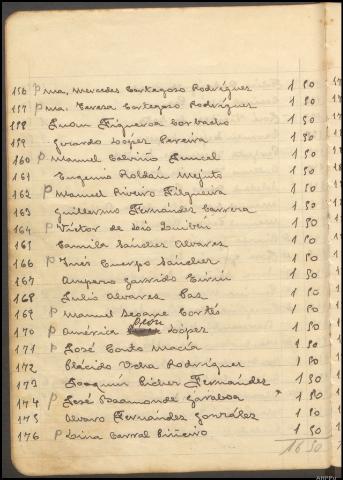 156 P Mª. Mercedes Cortegoso Rodríguez 1 50
157 P Mª. Teresa Cortegoso Rodríguez 1 50
158 Juan Figueroa Corbacho 1 50
159 Gerardo López Pereira 1 50
160 P Manuel Calviño Juncal 1 50
161 Eugenio Roldán Mejuto 1 50
162 P Manuel Riveiro Filgueira 1 50
163 Guillermo Fernández Carrera 1 50
164 P Víctor de Lis 1 50
165 Camila Sánchez Alvarez 1 50
166 P Inés Cuerpo Sánchez 1 50
167 Amparo Garrido 1 50
168 Julio Alvarez Paz 1 50
169 P Manuel Seoane Cortés 1 50
170 P América León López 1 50
171 P José Couto Macía 1 50
172 Plácido Vilva Rodríguez 1 50
173 Joaquín Picher Fernández 1 50
174 P José Baamonde Garaboa 1 50
175 Alvaro Fernández González 1 50
176 P Luisa Carral Piñeiro 1 50